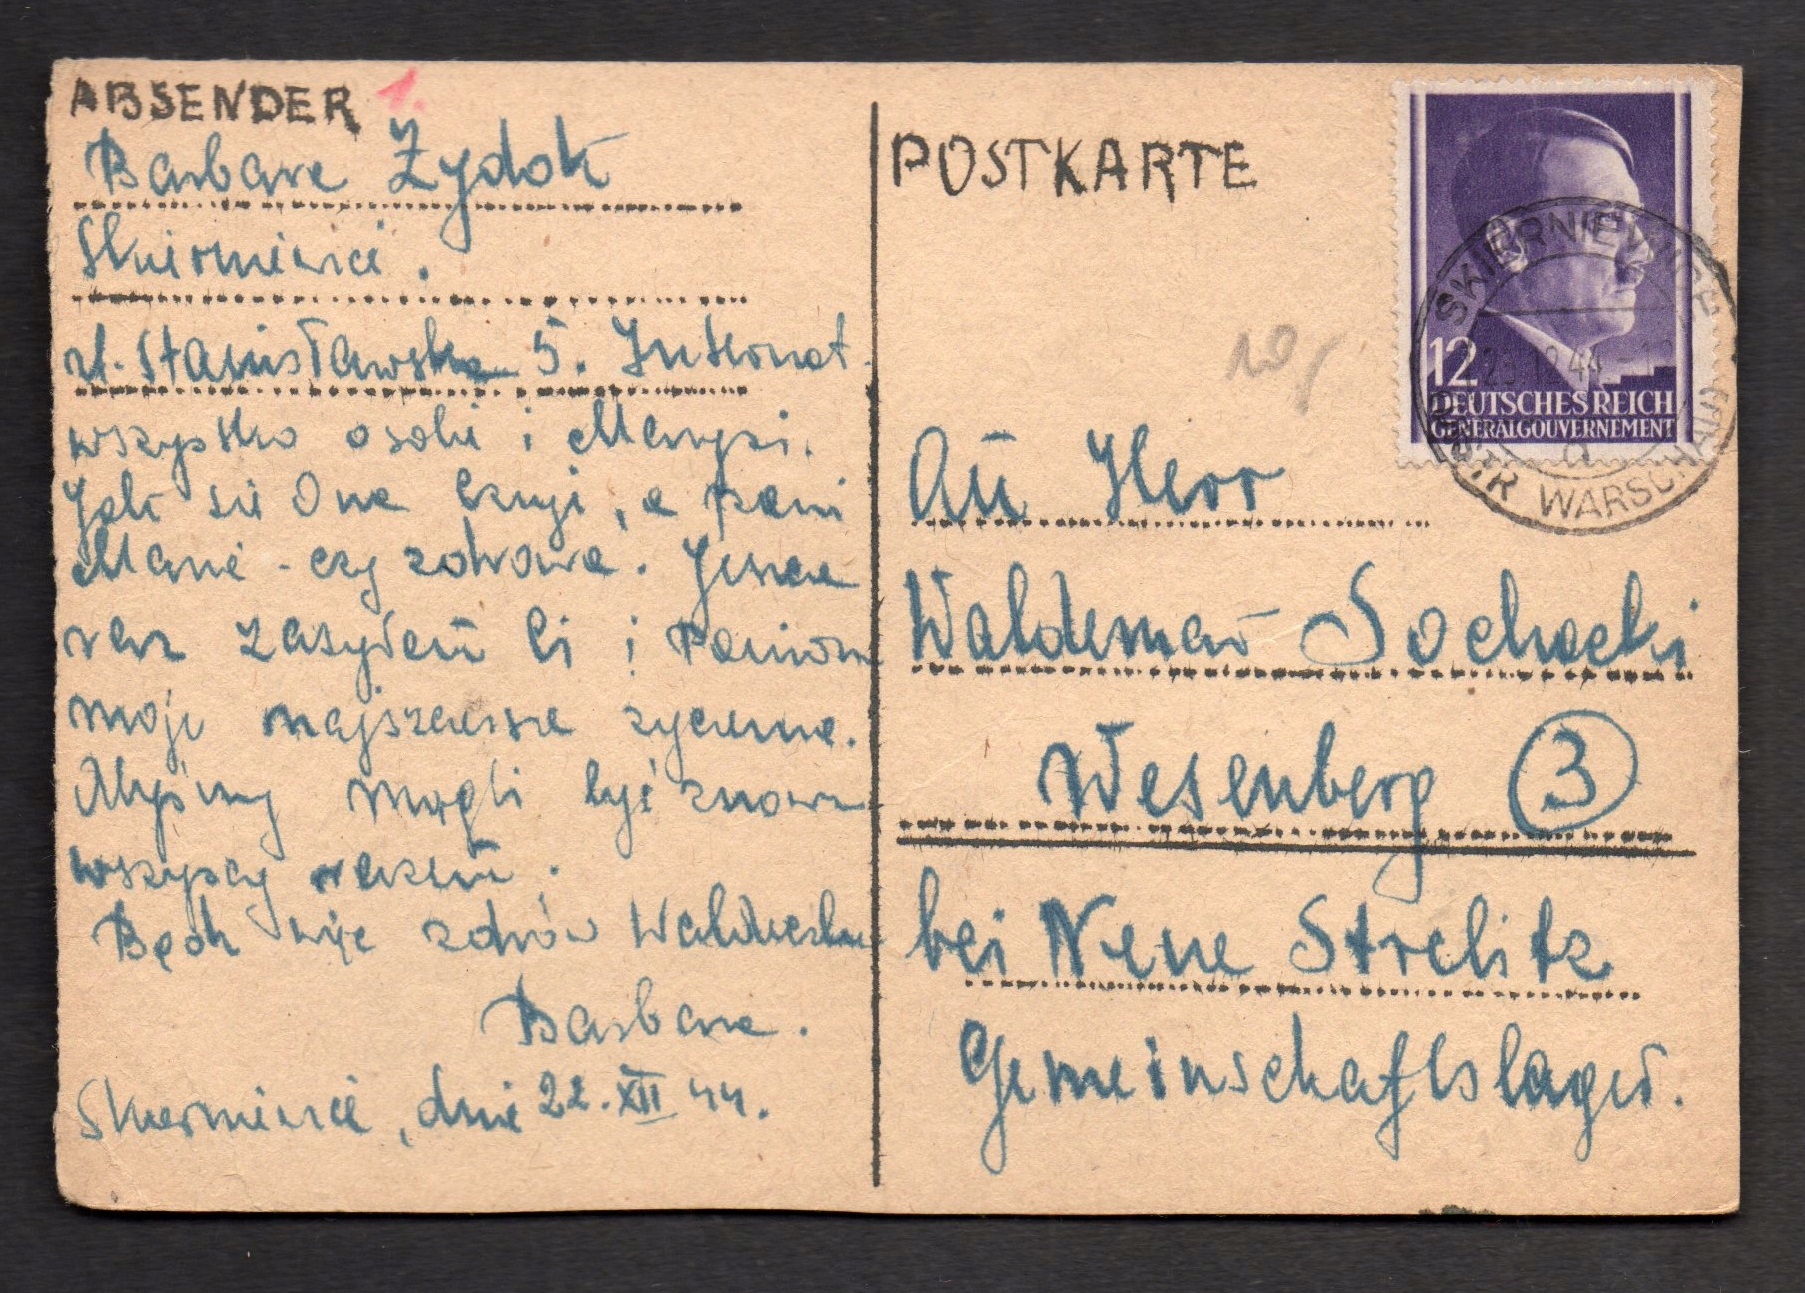 ABSENDER 1.
Barbara Żydok
Skierniewice.
ul. Stanisławska 5. Internat.
wszystko o sobie i Marysi.
Jak się Ona czuje, a pani
Mania - czy zdrowa. Jeszcze
raz zasyłam Ci i Paniom
moje najszczersze życzenia.
Abyśmy mogli być znowu
wszyscy razem.
Bądź więc zdrów Waldeczku
Barbara.
Skierniewice, dnia 22. XII 44.
POSTKARTE
An Herr
Waldemar Sochacki
Wesenberg 3
bei Neue Strelitz
Gemeinschaftslager.
12
DEUTSCHES REICH
GENERALGOUVERNEMENT
SKIERNIEWICE
12 44
DISTR WARSCHAU
a